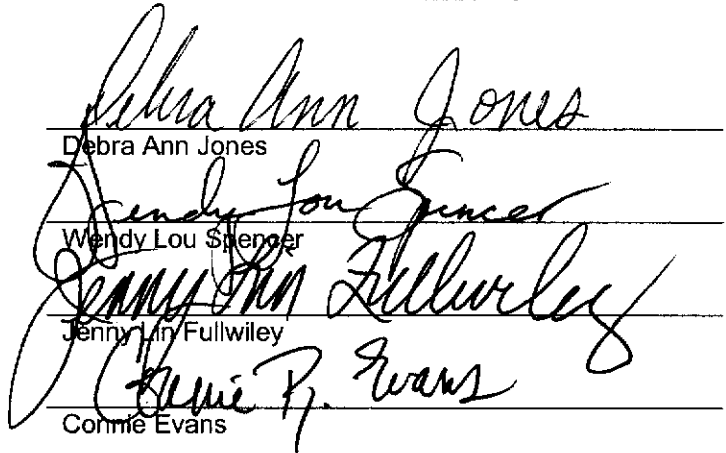 Debra Ann Jones
Debra Ann Jones
Wendy Lou Spencer
Wendy Lou Spencer
Jenny Lin Fullwiley
Jenny Lin Fullwiley
Connie R. Evans
Connie Evans